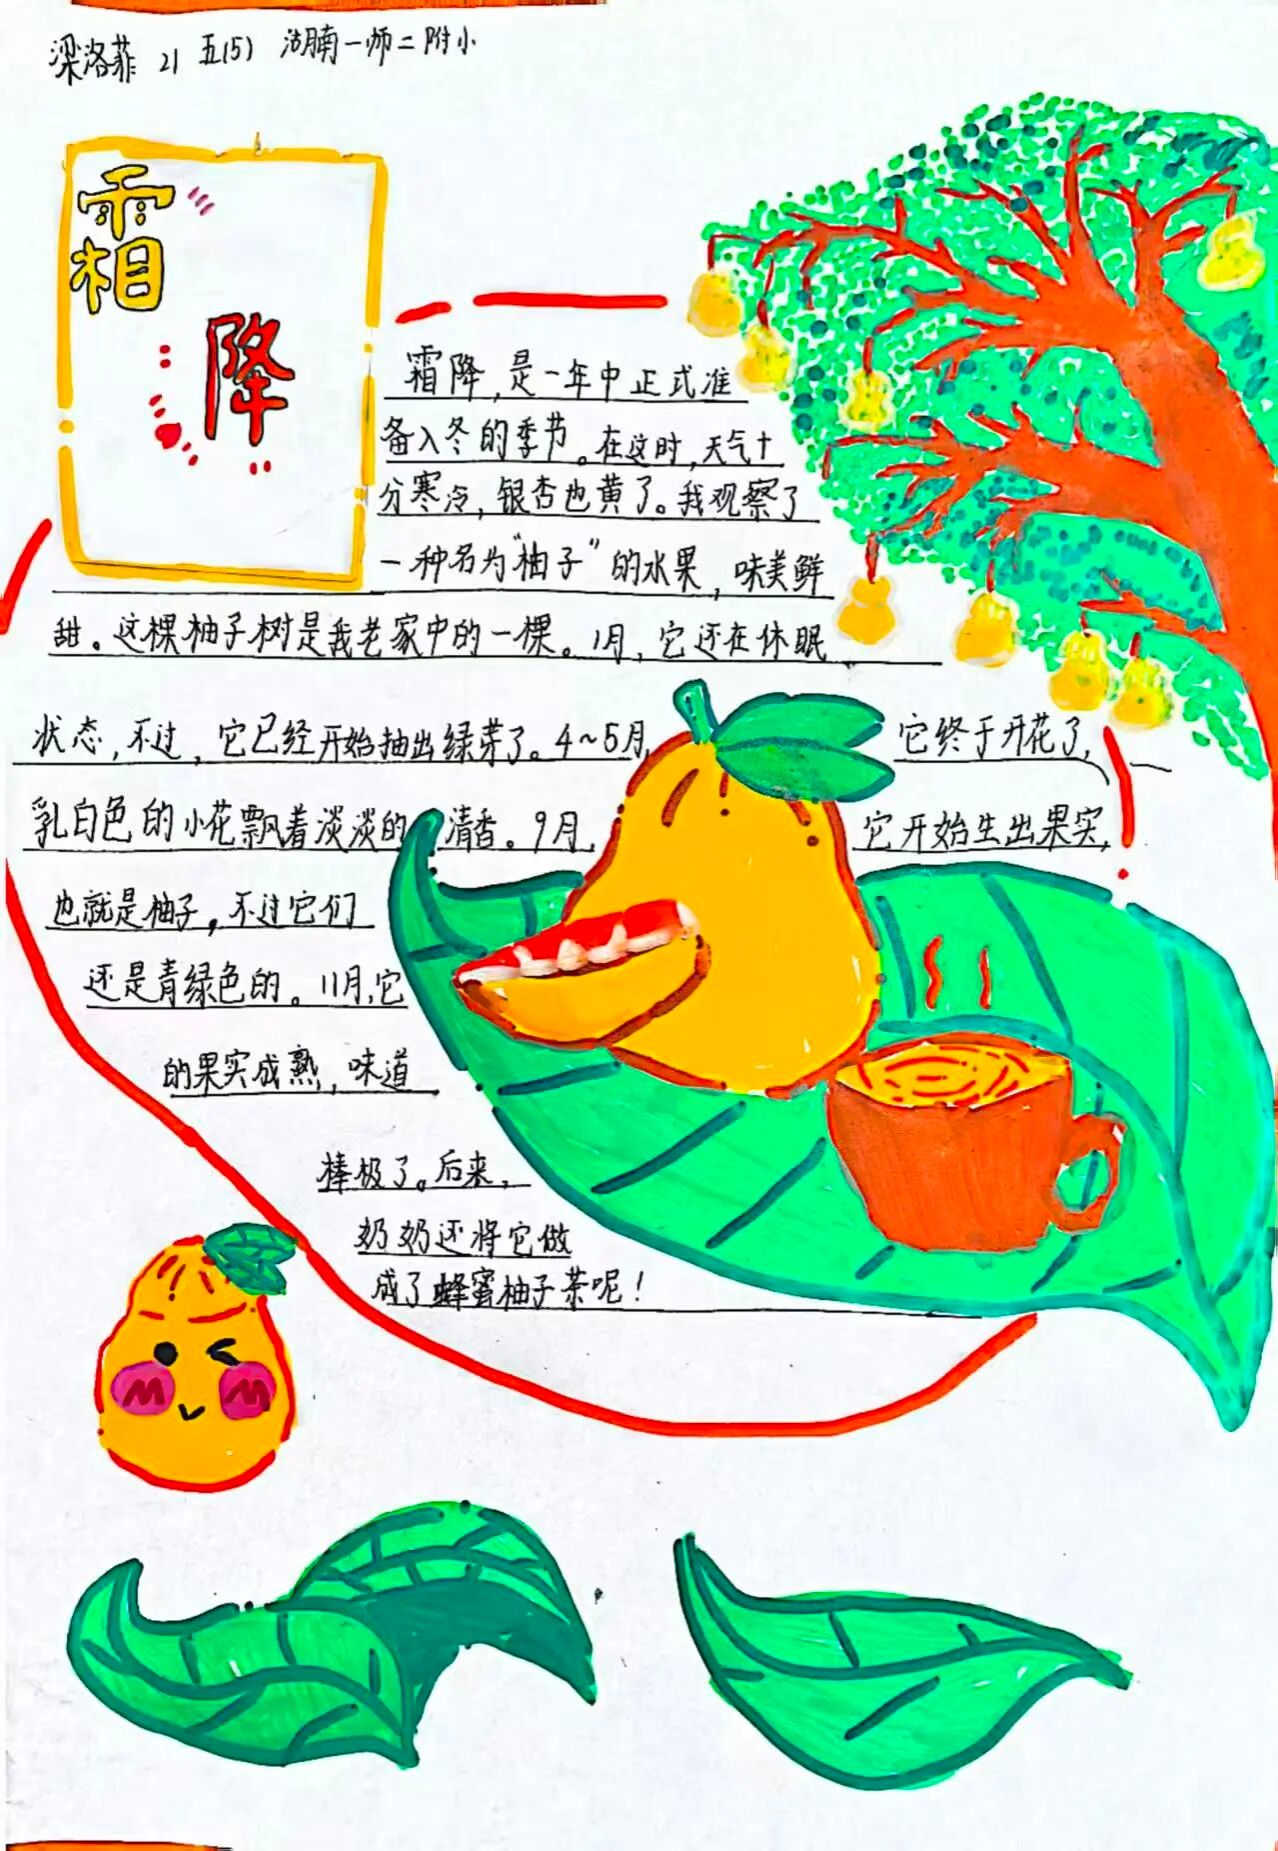 梁洛菲 21 五(5) 湖南一师二附小
霜
降
霜降，是一年中正式准
备入冬的季节。在这时，天气十
分寒冷，银杏也黄了。我观察了
一种名为“柚子”的水果，味美鲜
甜。这棵柚子树是我老家中的一棵。1月，它还在休眠
状态，不过，它已经开始抽出绿芽了。4~5月，它终于开花了，
乳白色的小花飘着淡淡的清香。9月，它开始生出果实，
也就是柚子，不过它们
还是青绿色的。11月，它
的果实成熟，味道
棒极了。后来，
奶奶还将它做
成了蜂蜜柚子茶呢！